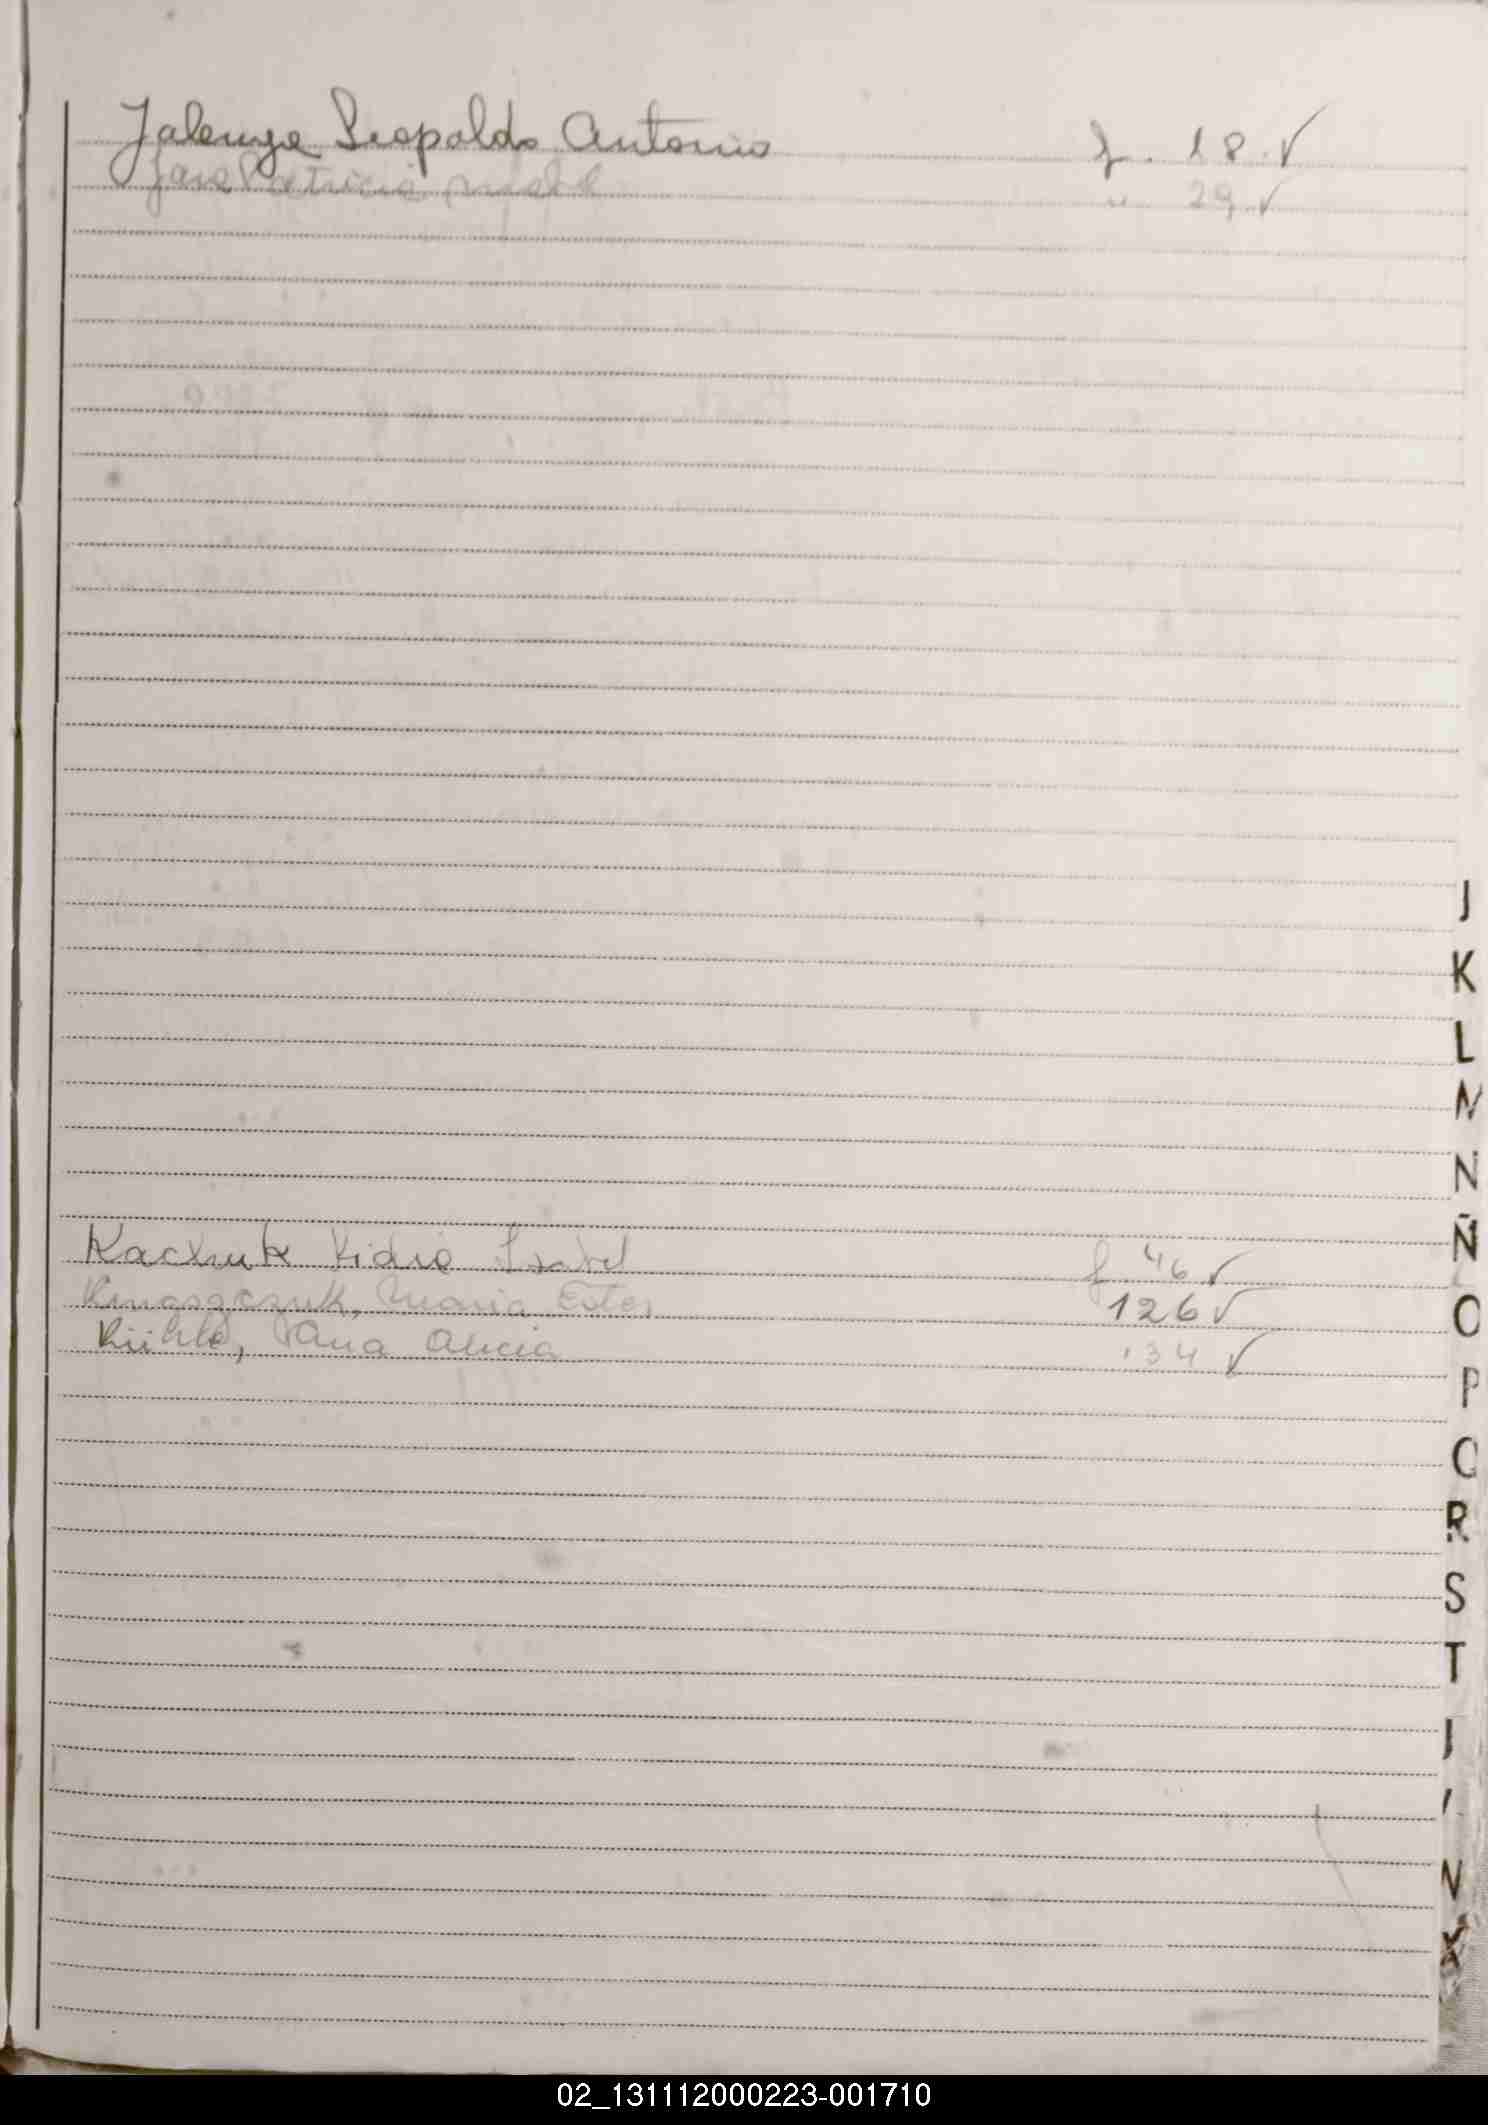 Jalenye Leopoldo Antonio f. 18. √
Jara Patricia " 29 √
J
K
L
M
N
Ñ
Kachuk Lidia Isabel f 46 √
Maria Ester 126 √
O
Ana Alicia 134 √
P
Q
R
S
T
V
X
02_131112000223-001710